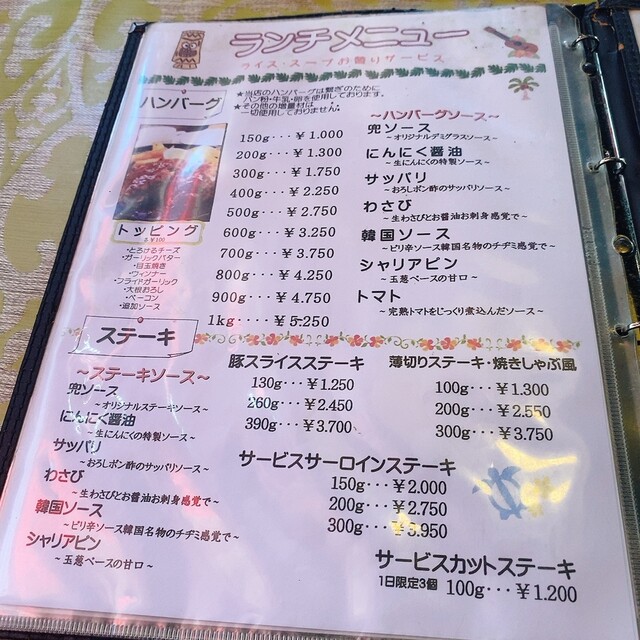 ランチメニュー
ライス・スープお替りサービス
ハンバーグ
★当店のハンバーグは繋ぎのために
パン粉・牛乳・卵を使用しております。
★その他の増量材は
一切使用しておりません。
150g・・・￥1.000
200g・・・￥1.300
300g・・・￥1.750
400g・・・￥2.250
500g・・・￥2.750
600g・・・￥3.250
700g・・・￥3.750
800g・・・￥4.250
900g・・・￥4.750
1kg・・・￥5.250
トッピング
各￥100
・とろけるチーズ
・ガーリックバター
・目玉焼き
・ウィンナー
・フライドガーリック
・大根おろし
・ベーコン
・追加ソース
～ハンバーグソース～
兜ソース
～オリジナルデミグラスソース～
にんにく醤油
～生にんにくの特製ソース～
サッパリ
～おろしポン酢のサッパリソース～
わさび
～生わさびとお醤油お刺身感覚で～
韓国ソース
～ピリ辛ソース韓国名物のチヂミ感覚で～
シャリアピン
～玉葱ベースの甘口～
トマト
～完熟トマトをじっくり煮込んだソース～
ステーキ
～ステーキソース～
兜ソース
～オリジナルステーキソース～
にんにく醤油
～生にんにくの特製ソース～
サッパリ
～おろしポン酢のサッパリソース～
わさび
～生わさびとお醤油お刺身感覚で～
韓国ソース
～ピリ辛ソース韓国名物のチヂミ感覚で～
シャリアピン
～玉葱ベースの甘口～
豚スライスステーキ
130g・・・￥1.250
260g・・・￥2.450
390g・・・￥3.700
薄切りステーキ・焼きしゃぶ風
100g・・・￥1.300
200g・・・￥2.550
300g・・・￥3.750
サービスサーロインステーキ
150g・・・￥2.000
200g・・・￥2.750
300g・・・￥3.950
サービスカットステーキ
1日限定3個 100g・・・￥1.200